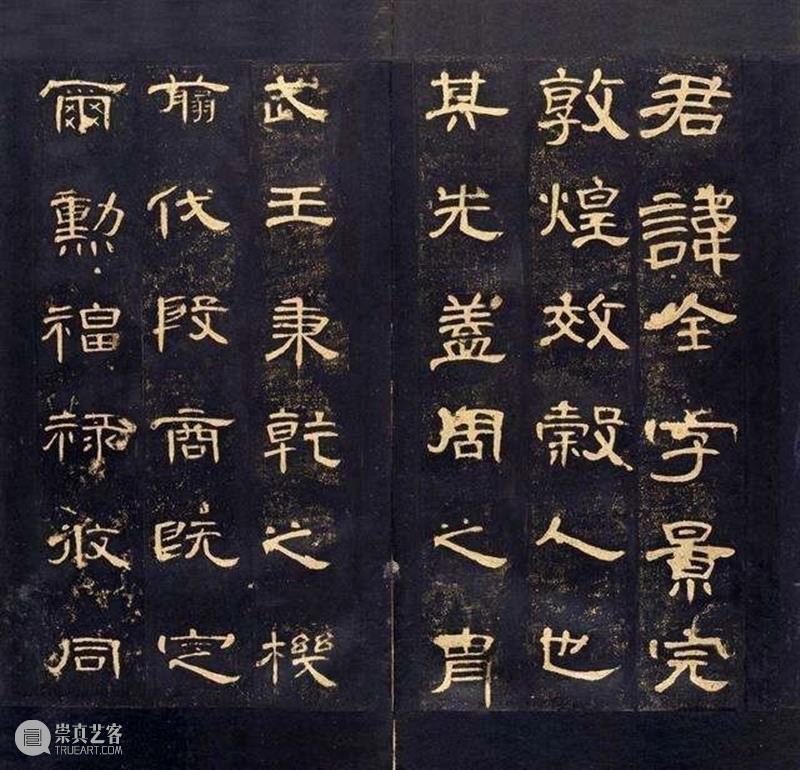 君諱全字景完
敦煌效穀人也
其先蓋周之胄
武王秉乾之機
翦伐殷商既定
爾勳福祿攸同
崇真艺客
TRUEART.COM